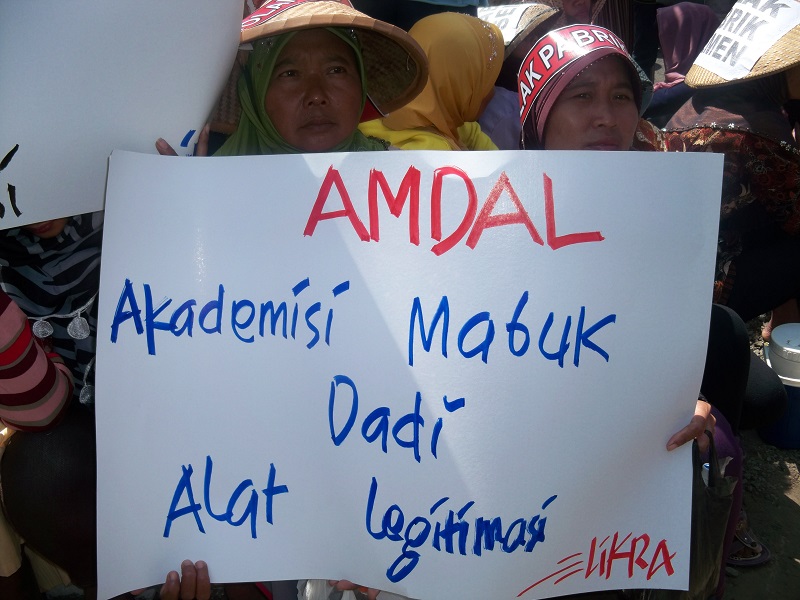 AMDAL
Akademisi Mabuk
Dadi
Alat Legitimasi
LIKRA
LAK PABRIK
AK
RIK
MEN